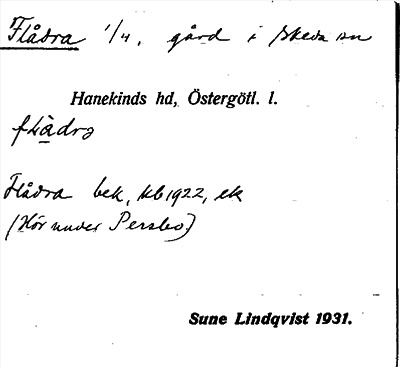 Flådra 1/4, gård i Skeda sn
Hanekinds hd, Östergötl. l.
flådrɑ
Flådra bek, kb 1922, ek
(Hör under Persbo)
Sune Lindqvist 1931.